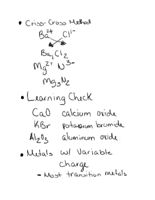 • Criss-Cross Method
Ba²⁺ Cl¹⁻
Ba₁Cl₂
Mg²⁺ N³⁻
Mg₃N₂
• Learning Check
CaO calcium oxide
KBr potassium bromide
Al₂O₃ aluminum oxide
• Metals w/ Variable
Charge
- Most transition metals